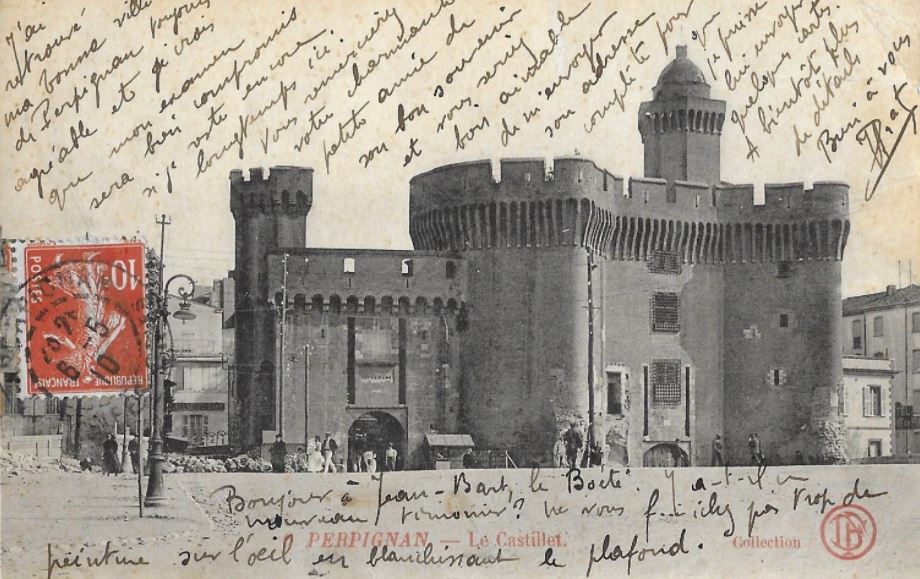 J'ai
retrouvé
ma bonne ville
de Perpignan toujours
agréable et je crois
que mon examen
sera bien compromis
si je reste encore
longtemps ici.
Vous remercierez
votre charmante
petite amie de
son bon souvenir
et vous seriez
bien aimable
de m'envoyer
son adresse
complète pour
que je puisse
lui envoyer
quelques cartes.
A bientôt plus
de détails
Bien à vous
10
POSTES
REPUBLIQUE FRANÇAISE
Bonjour à Jean-Bart, le Boëté. Y a-t-il un
nouveau ? ne vous pas trop de
PERPIGNAN. — Le Castillet.
Collection
peinture sur l'oeil en blanchissant le plafond.